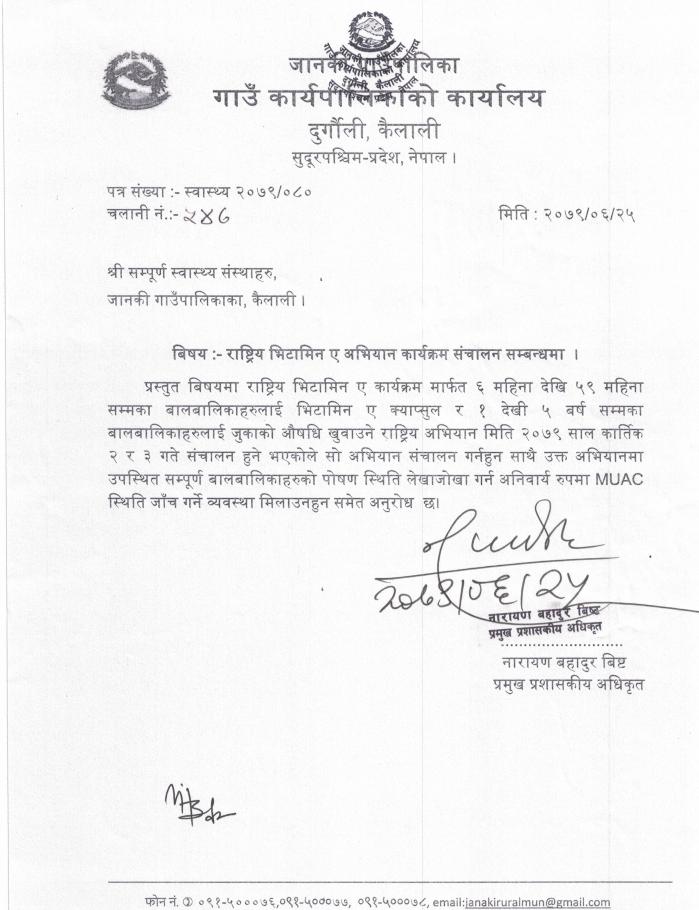 जानकी गाउँपालिका
गाउँ कार्यपालिकाको कार्यालय
दुर्गौली, कैलाली
सुदूरपश्चिम-प्रदेश, नेपाल ।
पत्र संख्या :- स्वास्थ्य २०७९/०८०
चलानी नं.:- २४६
मिति : २०७९/०६/२५
श्री सम्पूर्ण स्वास्थ्य संस्थाहरु,
जानकी गाउँपालिकाका, कैलाली ।
बिषय :- राष्ट्रिय भिटामिन ए अभियान कार्यक्रम संचालन सम्बन्धमा ।
प्रस्तुत बिषयमा राष्ट्रिय भिटामिन ए कार्यक्रम मार्फत ६ महिना देखि ५९ महिना
सम्मका बालबालिकाहरुलाई भिटामिन ए क्याप्सुल र १ देखी ५ बर्ष सम्मका
बालबालिकाहरुलाई जुकाको औषधि खुवाउने राष्ट्रिय अभियान मिति २०७९ साल कार्तिक
२ र ३ गते संचालन हुने भएकोले सो अभियान संचालन गर्नहुन साथै उक्त अभियानमा
उपस्थित सम्पूर्ण बालबालिकाहरुको पोषण स्थिति लेखाजोखा गर्न अनिवार्य रुपमा MUAC
स्थिति जाँच गर्ने व्यवस्था मिलाउनहुन समेत अनुरोध छ।
२०७९/०६/२५
नारायण बहादुर बिष्ट
प्रमुख प्रशासकीय अधिकृत
नारायण बहादुर बिष्ट
प्रमुख प्रशासकीय अधिकृत
फोन नं. ✆ ०९१-५०००७६,०९१-५०००७७, ०९१-५०००७८, email:janakiruralmun@gmail.com